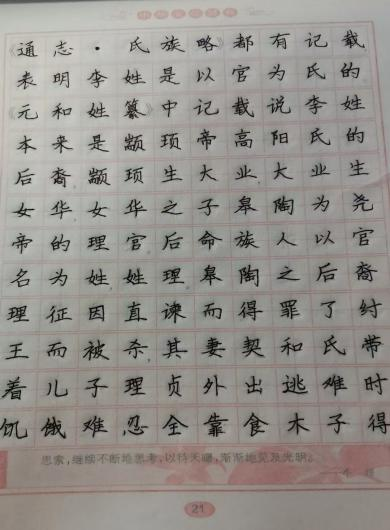 《通志·氏族略》都有记载
表明李姓是以官为氏的
《元和姓纂》中记载说李姓
本来是颛顼帝高阳氏的
后裔颛顼生大业大业生
女华女华之子皋陶为尧
帝的理官后命族人以官
名为姓姓理皋陶之后裔
理征因直谏而得罪了纣
王而被杀其妻契和氏带
着儿子理贞外出逃难时
饥饿难忍全靠食木子得
思索,继续不断地思考,以待天曙,渐渐地见及光明。
21